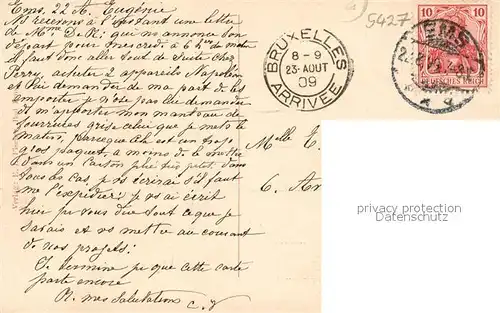 Ems, 22 A. Eugénie
Ns recevons à l'instant une lettre
de Mme De R. qui ns annonce son
départ pour mercredi à 6 h de
il faut donc aller tout de suite chez
Perry, acheter 2 appareils Napoléon
et lui demander de ma part de les
emporter je n'ose pas lui demander
de m'apporter mon manteau de
fourrures grise celui que je mets le
matin, parceque c'est un trop
gros paquet, à moins de le mettre
dans un carton plus petit dans
tous les cas, je vs écrirai s'il faut
me l'expédier; je vs ai écrit
hier je vous dire tout ce que je
savais et vs mettre au courant
de nos projets;
Je termine pr que cette carte
parte encore
R. mes salutations C. J
5427
BRUXELLES
8-9
23-AOUT
09
ARRIVÉE
EMS
10 10
DEUTSCHES REICH
Melle E.
6. Av
copyright protected
Datenschutz